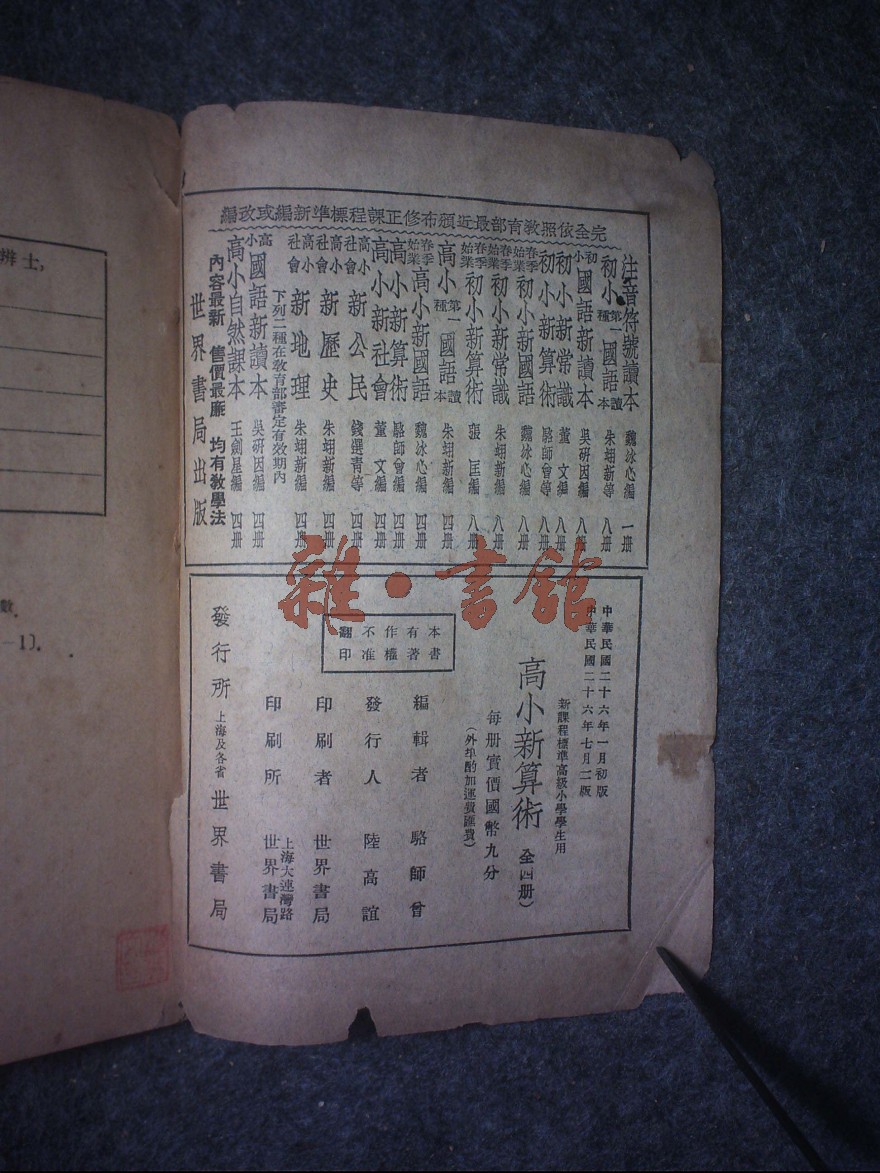 完全依照教育部最近頒布修正課程標準新編或改編
注音符號讀本 魏冰心編 一册
初小第一種國語讀本 朱翊新等 八册
初小國語新讀本 吳研因編 八册
初小新常識 董文編 八册
初小新算術 駱師曾等 八册
春季始業初小新國語 魏冰心編 八册
春季始業初小新常識 朱翊新編 八册
春季始業初小新算術 張匡編 八册
高小第一種國語讀本 朱翊新編 四册
春季始業高小新國語 魏冰心編 四册
高小新算術 駱師曾編 四册
高小新社會 董文編 四册
高小社會新公民 錢選青等 四册
高小社會新歷史 朱翊新編 四册
高小社會新地理 朱翊新編 四册
下列二種在教育部審定有效期內
高小國語新讀本 吳研因編 四册
高小自然課本 王劍星編 四册
內容最新 售價最廉 均有教學法
世界書局出版
雜·書館
中華民國二十六年一月初版
中華民國二十六年七月二版
新課程標準高級小學學生用
高小新算術 全四册)
每册實價國幣九分
(外埠酌加運費匯費)
本書有著作權不准翻印
編輯者 駱師曾
發行人 陸高誼
印刷者 世界書局
印刷所 上海大連灣路 世界書局
發行所 上海及各省 世界書局
辨士,
數.
—1).